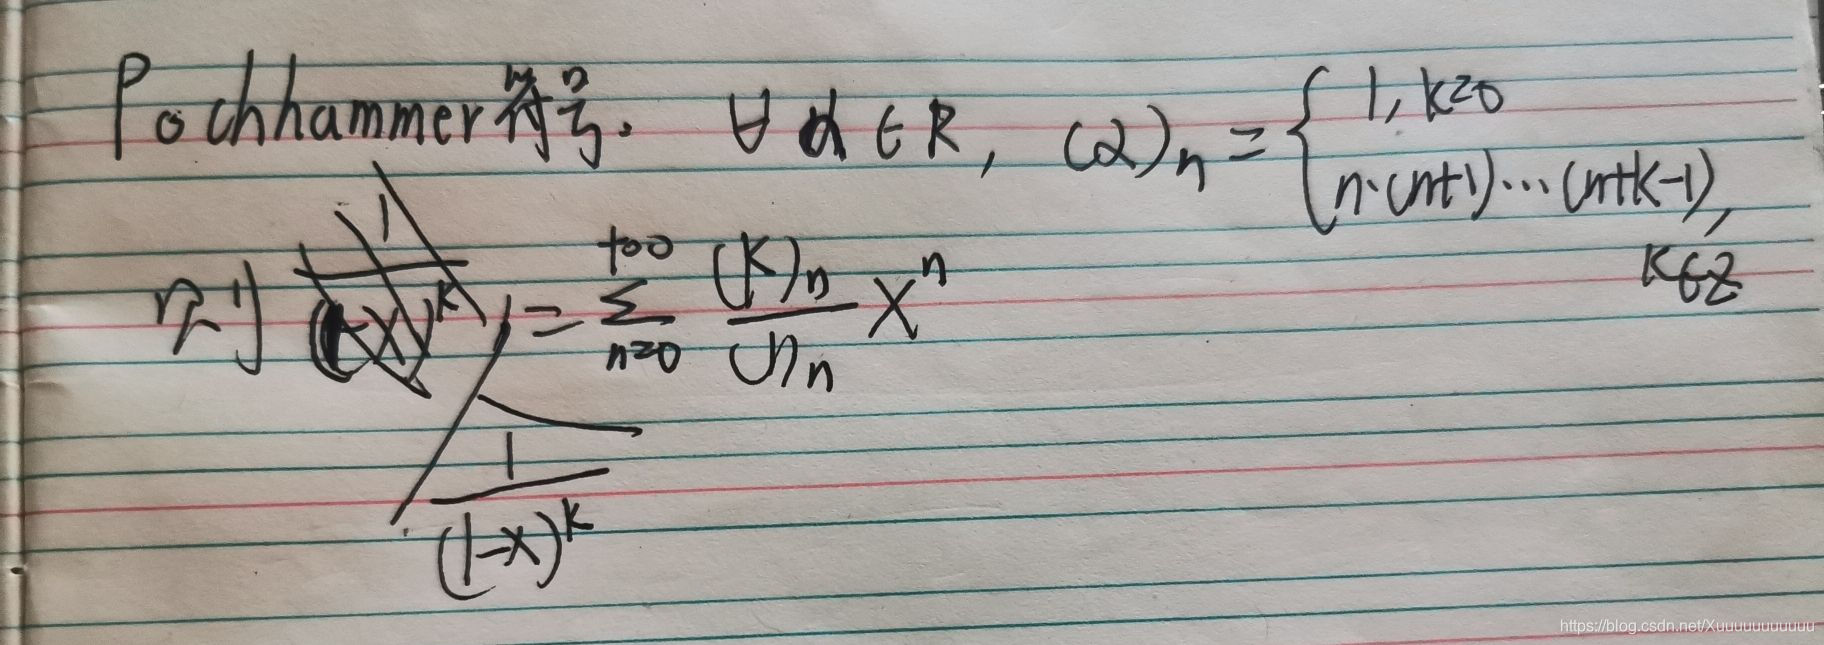 Pochhammer符号. ∀ α ∈ R, (α)ₙ = { 1, k=0
n·(n+1)···(n+k-1),
k∈Z
则 1/(1-x)^k = Σ_{n=0}^{+∞} (k)ₙ/(1)ₙ xⁿ
1/(1-x)^k
https://blog.csdn.net/Xuuuuuuuuuuu